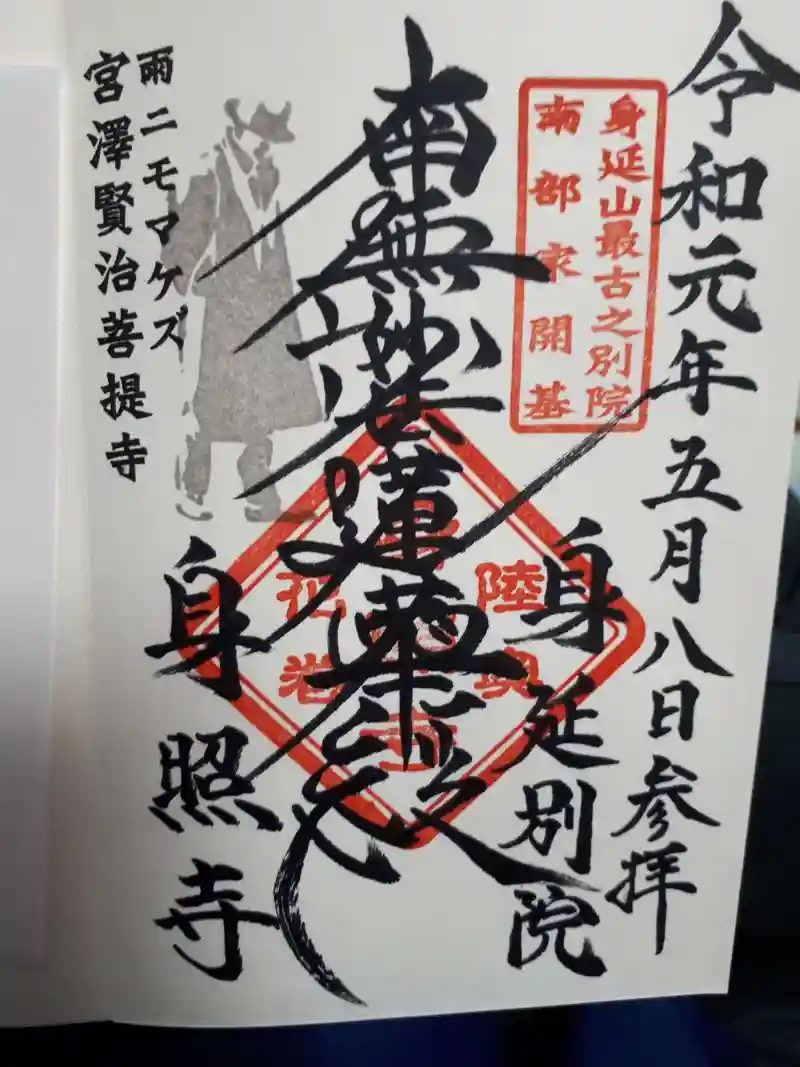 令和元年五月八日参拝
身延山最古之別院
南部家開基
身延別院
南無妙法蓮華経
陸奥
花巻
身照寺
雨ニモマケズ
宮澤賢治菩提寺